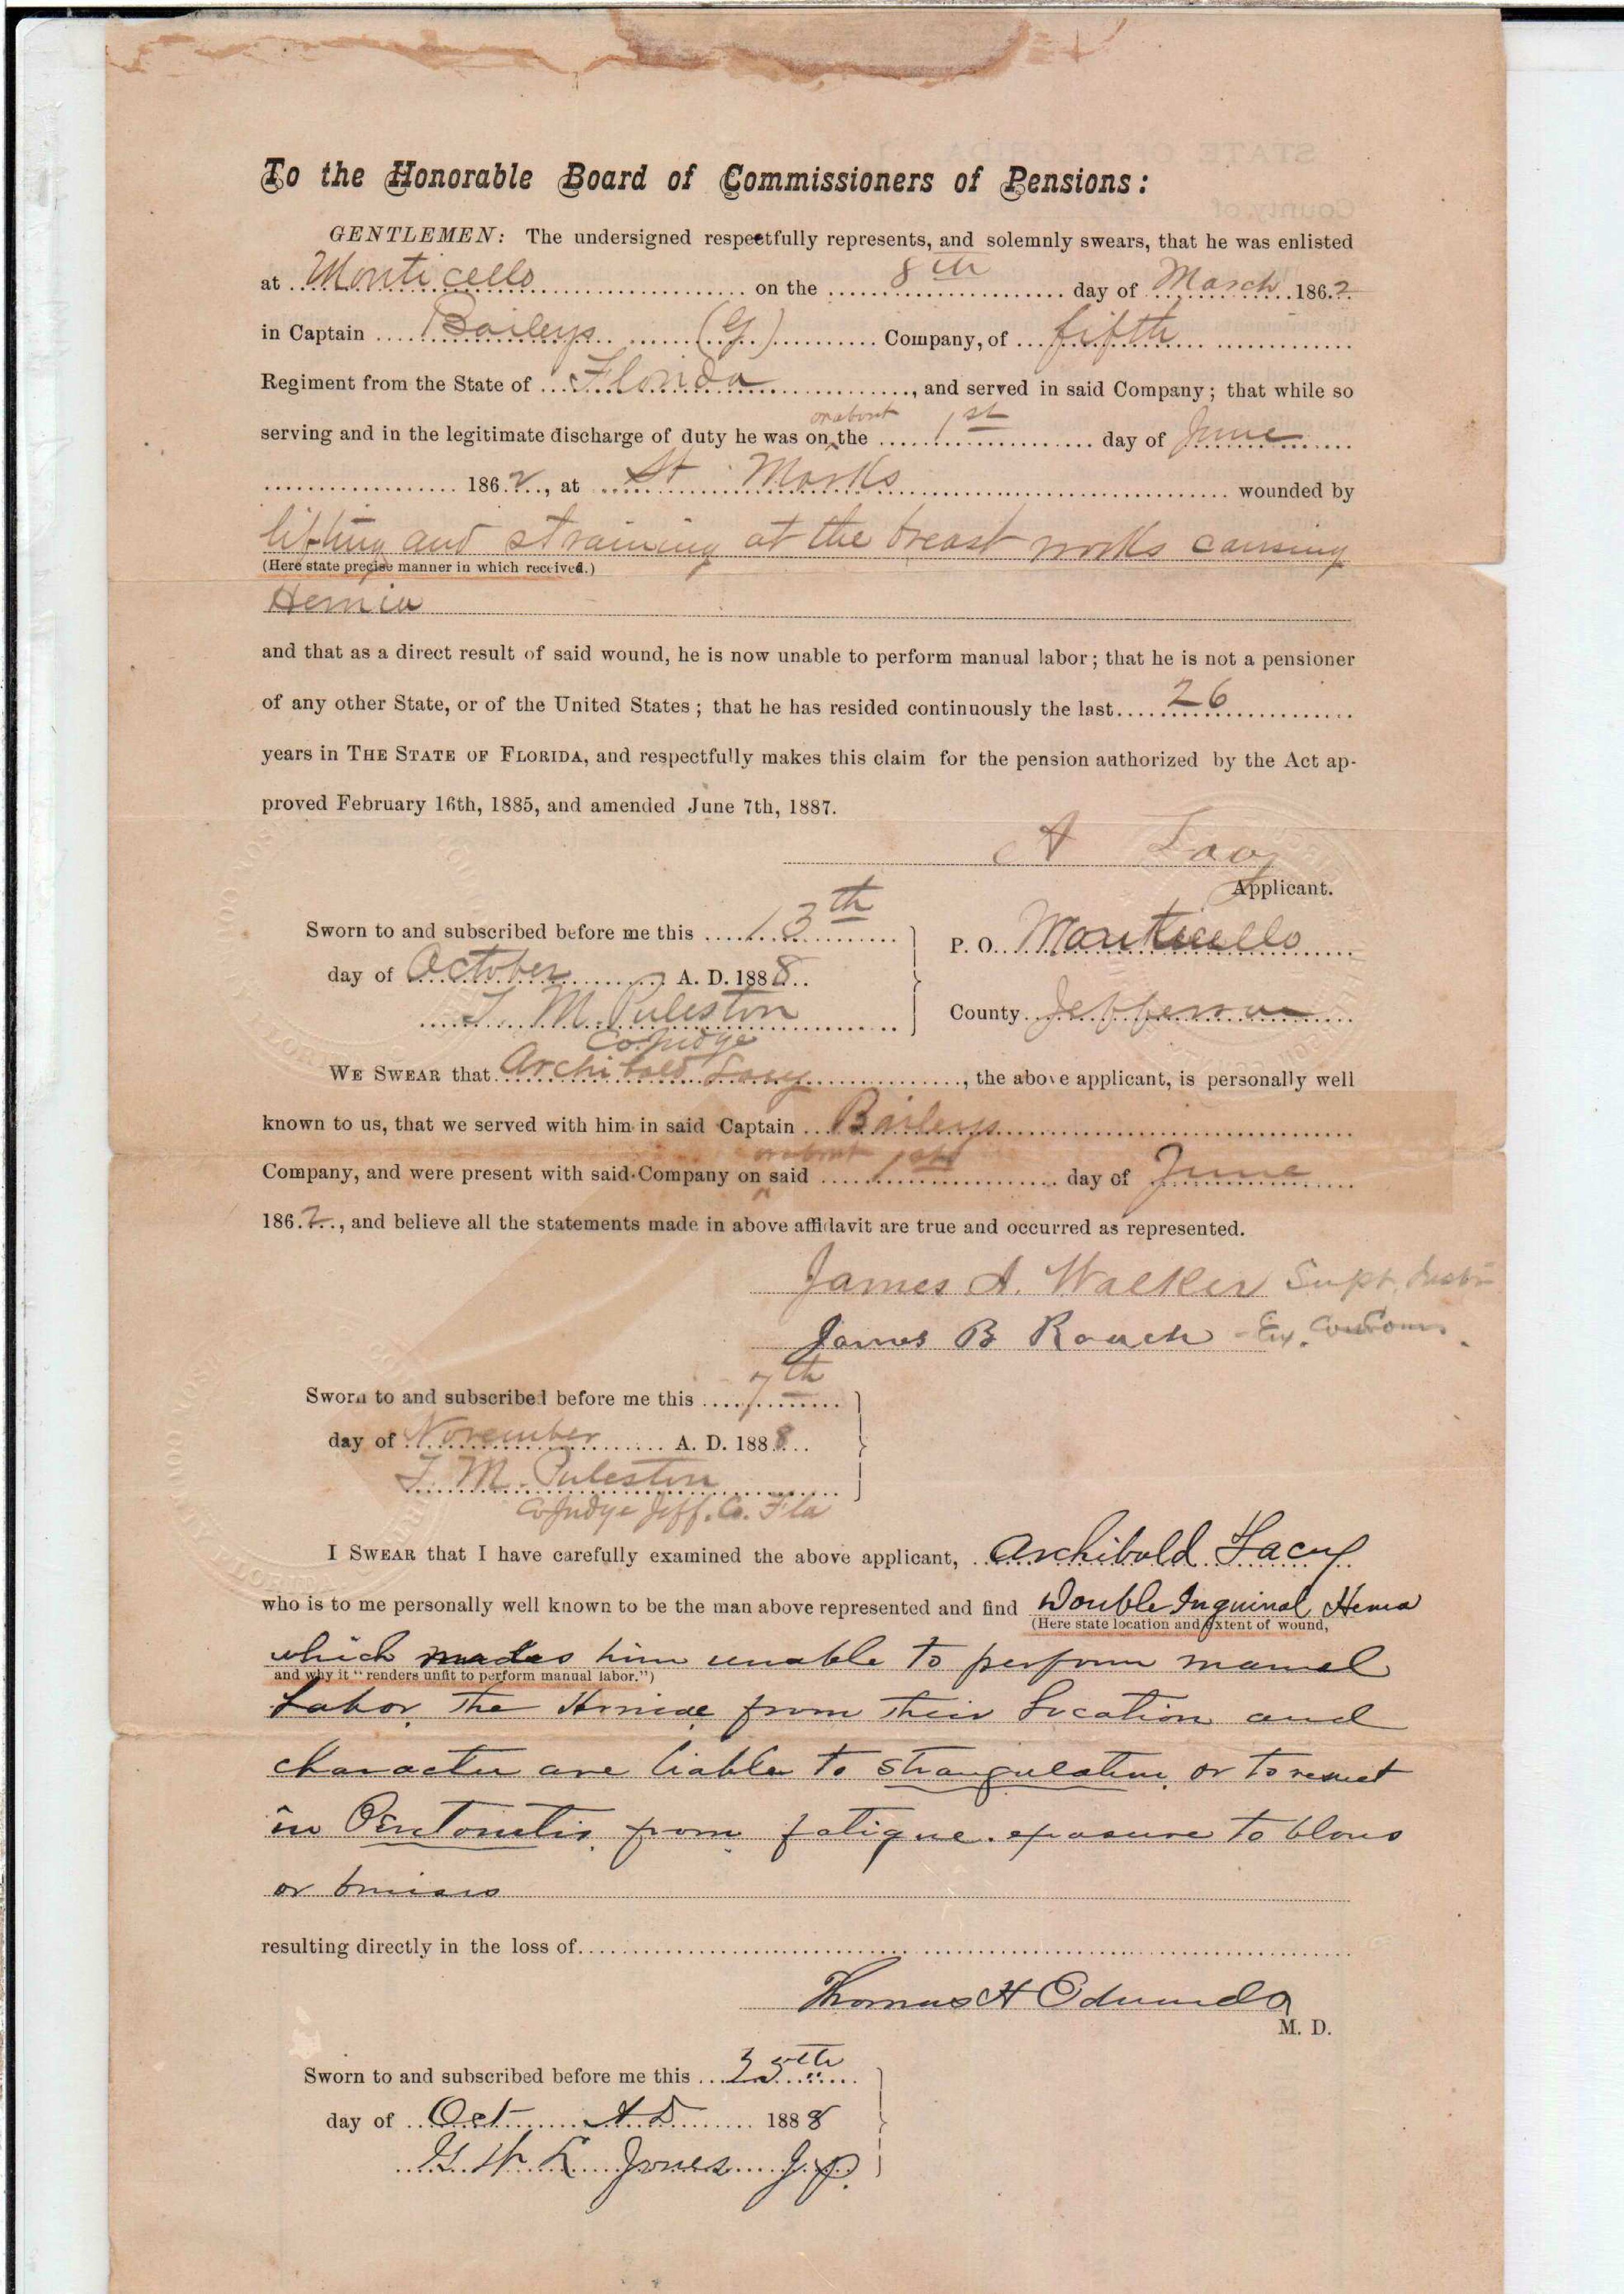 To the Honorable Board of Commissioners of Pensions:
GENTLEMEN: The undersigned respectfully represents, and solemnly swears, that he was enlisted
at Monticello on the 8th day of March 1862
in Captain Baileys (G) Company, of fifth
Regiment from the State of Florida, and served in said Company; that while so
or about
serving and in the legitimate discharge of duty he was on the 1st day of June
1862, at St Marks wounded by
lifting and straining at the breast works causing
(Here state precise manner in which received.)
Hernia
and that as a direct result of said wound, he is now unable to perform manual labor; that he is not a pensioner
of any other State, or of the United States; that he has resided continuously the last 26
years in THE STATE OF FLORIDA, and respectfully makes this claim for the pension authorized by the Act ap-
proved February 16th, 1885, and amended June 7th, 1887.
A
Applicant.
Sworn to and subscribed before me this 13th
P. O. Monticello
day of October A. D. 1888
T. M. Puleston
County Jefferson
Co. Judge
WE SWEAR that Archibald Lacy, the above applicant, is personally well
known to us, that we served with him in said Captain Baileys
or about
Company, and were present with said Company on said 1st day of June
1862, and believe all the statements made in above affidavit are true and occurred as represented.
James A. Walker Supt.
James B Roach Ex.
Sworn to and subscribed before me this 7th
day of November A. D. 1888
T. M. Puleston
Co Judge Jeff. Co. Fla
I SWEAR that I have carefully examined the above applicant, Archibald Lacy
who is to me personally well known to be the man above represented and find Double Inguinal Hernia
(Here state location and extent of wound,
which makes him unable to perform manuel
and why it "renders unfit to perform manual labor.")
Labor. The Herniae from their Location and
character are liable to strangulation or to result
in Peritonitis from fatigue. exposure to blows
or bruises
resulting directly in the loss of
Thomas H Edwards
M. D.
Sworn to and subscribed before me this 25th
day of Oct A D 1888
Jones J.P.